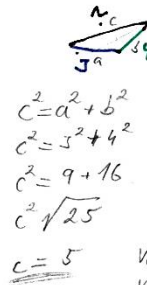 c
3 a
c² = a² + b²
c² = 3² + 4²
c² = 9 + 16
c² √25
c = 5